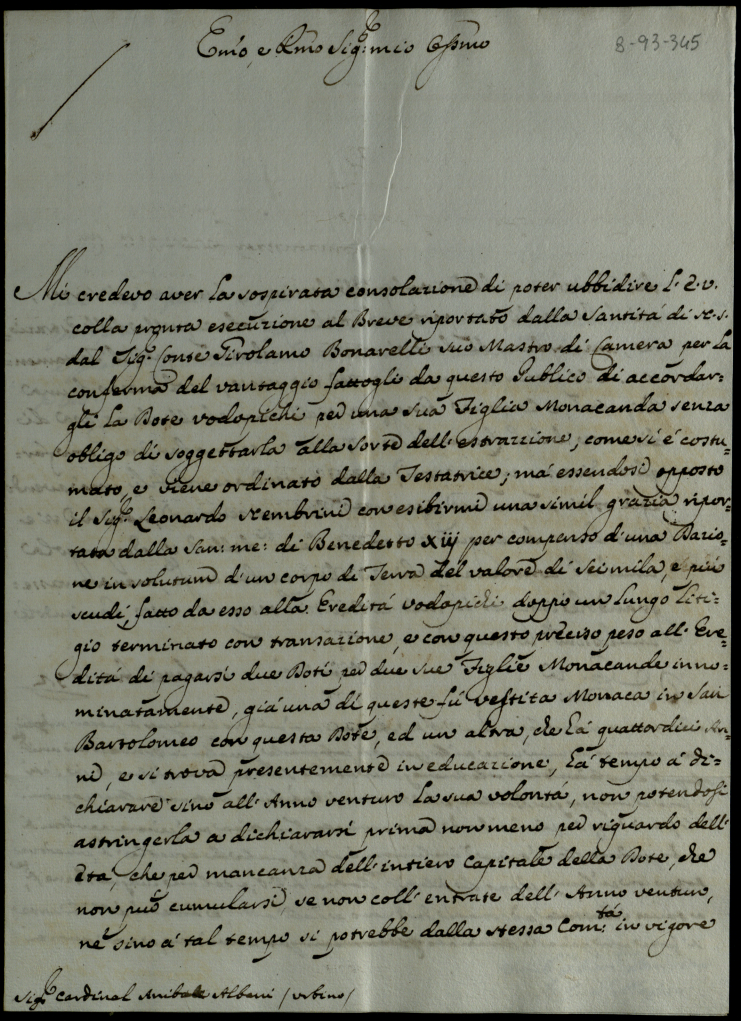 8-93-345
Em̃o, e Rmo Sigr: mio Ossmo
Mi credevo aver la sospirata consolazione di poter ubbidire l. E. V.
colla pronta esecuzione al Breve riportato dalla Santitá di N. S.
dal Sigr. Conte Girolamo Bonarelli suo Mastro di Camera per la
conferma del vantaggio fattogli da questo Publico di accordar=
gli la Dote Vodapichi per una sua Figlia Monacanda senza
obligo di soggettarla alla sorte dell'estrazzione, come si é costu=
mato, e viene ordinato dalla Testatrice; ma essendosi opposto
il Sigr. Leonardo Nembrini con esibirmi una simil grazia ripor=
tata dalla San: me: di Benedetto XIII per compenso d'una Dazio=
ne in solutum d'un corpo di Terra del valore di Seimila, e piú
scudi, fatto da esso alla Ereditá Vodapichi doppo un lungo Liti=
gio terminato con transazione, e con questo preciso peso all'Ere=
ditá di pagarsi due Doti per due sue Figlie Monacande inno=
minatamente, giá una di queste fú vestita Monaca in San
Bartolomeo con questa Dote, ed un altra, che há quattordici An=
ni, e si trova presentemente in educazione, há tempo á di=
chiarare sino all'Anno venturo la sua volontá, non potendosi
astringerla a dichiararsi prima non meno per riguardo dell'
etá, che per mancanza dell'intiero Capitale della Dote, che
non puó cumularsi, se non coll'entrate dell'Anno venturo,
né sino á tal tempo si potrebbe dalla stessa Com:tá in vigore
Sigr. Cardinal Anibale Albani /Urbino/